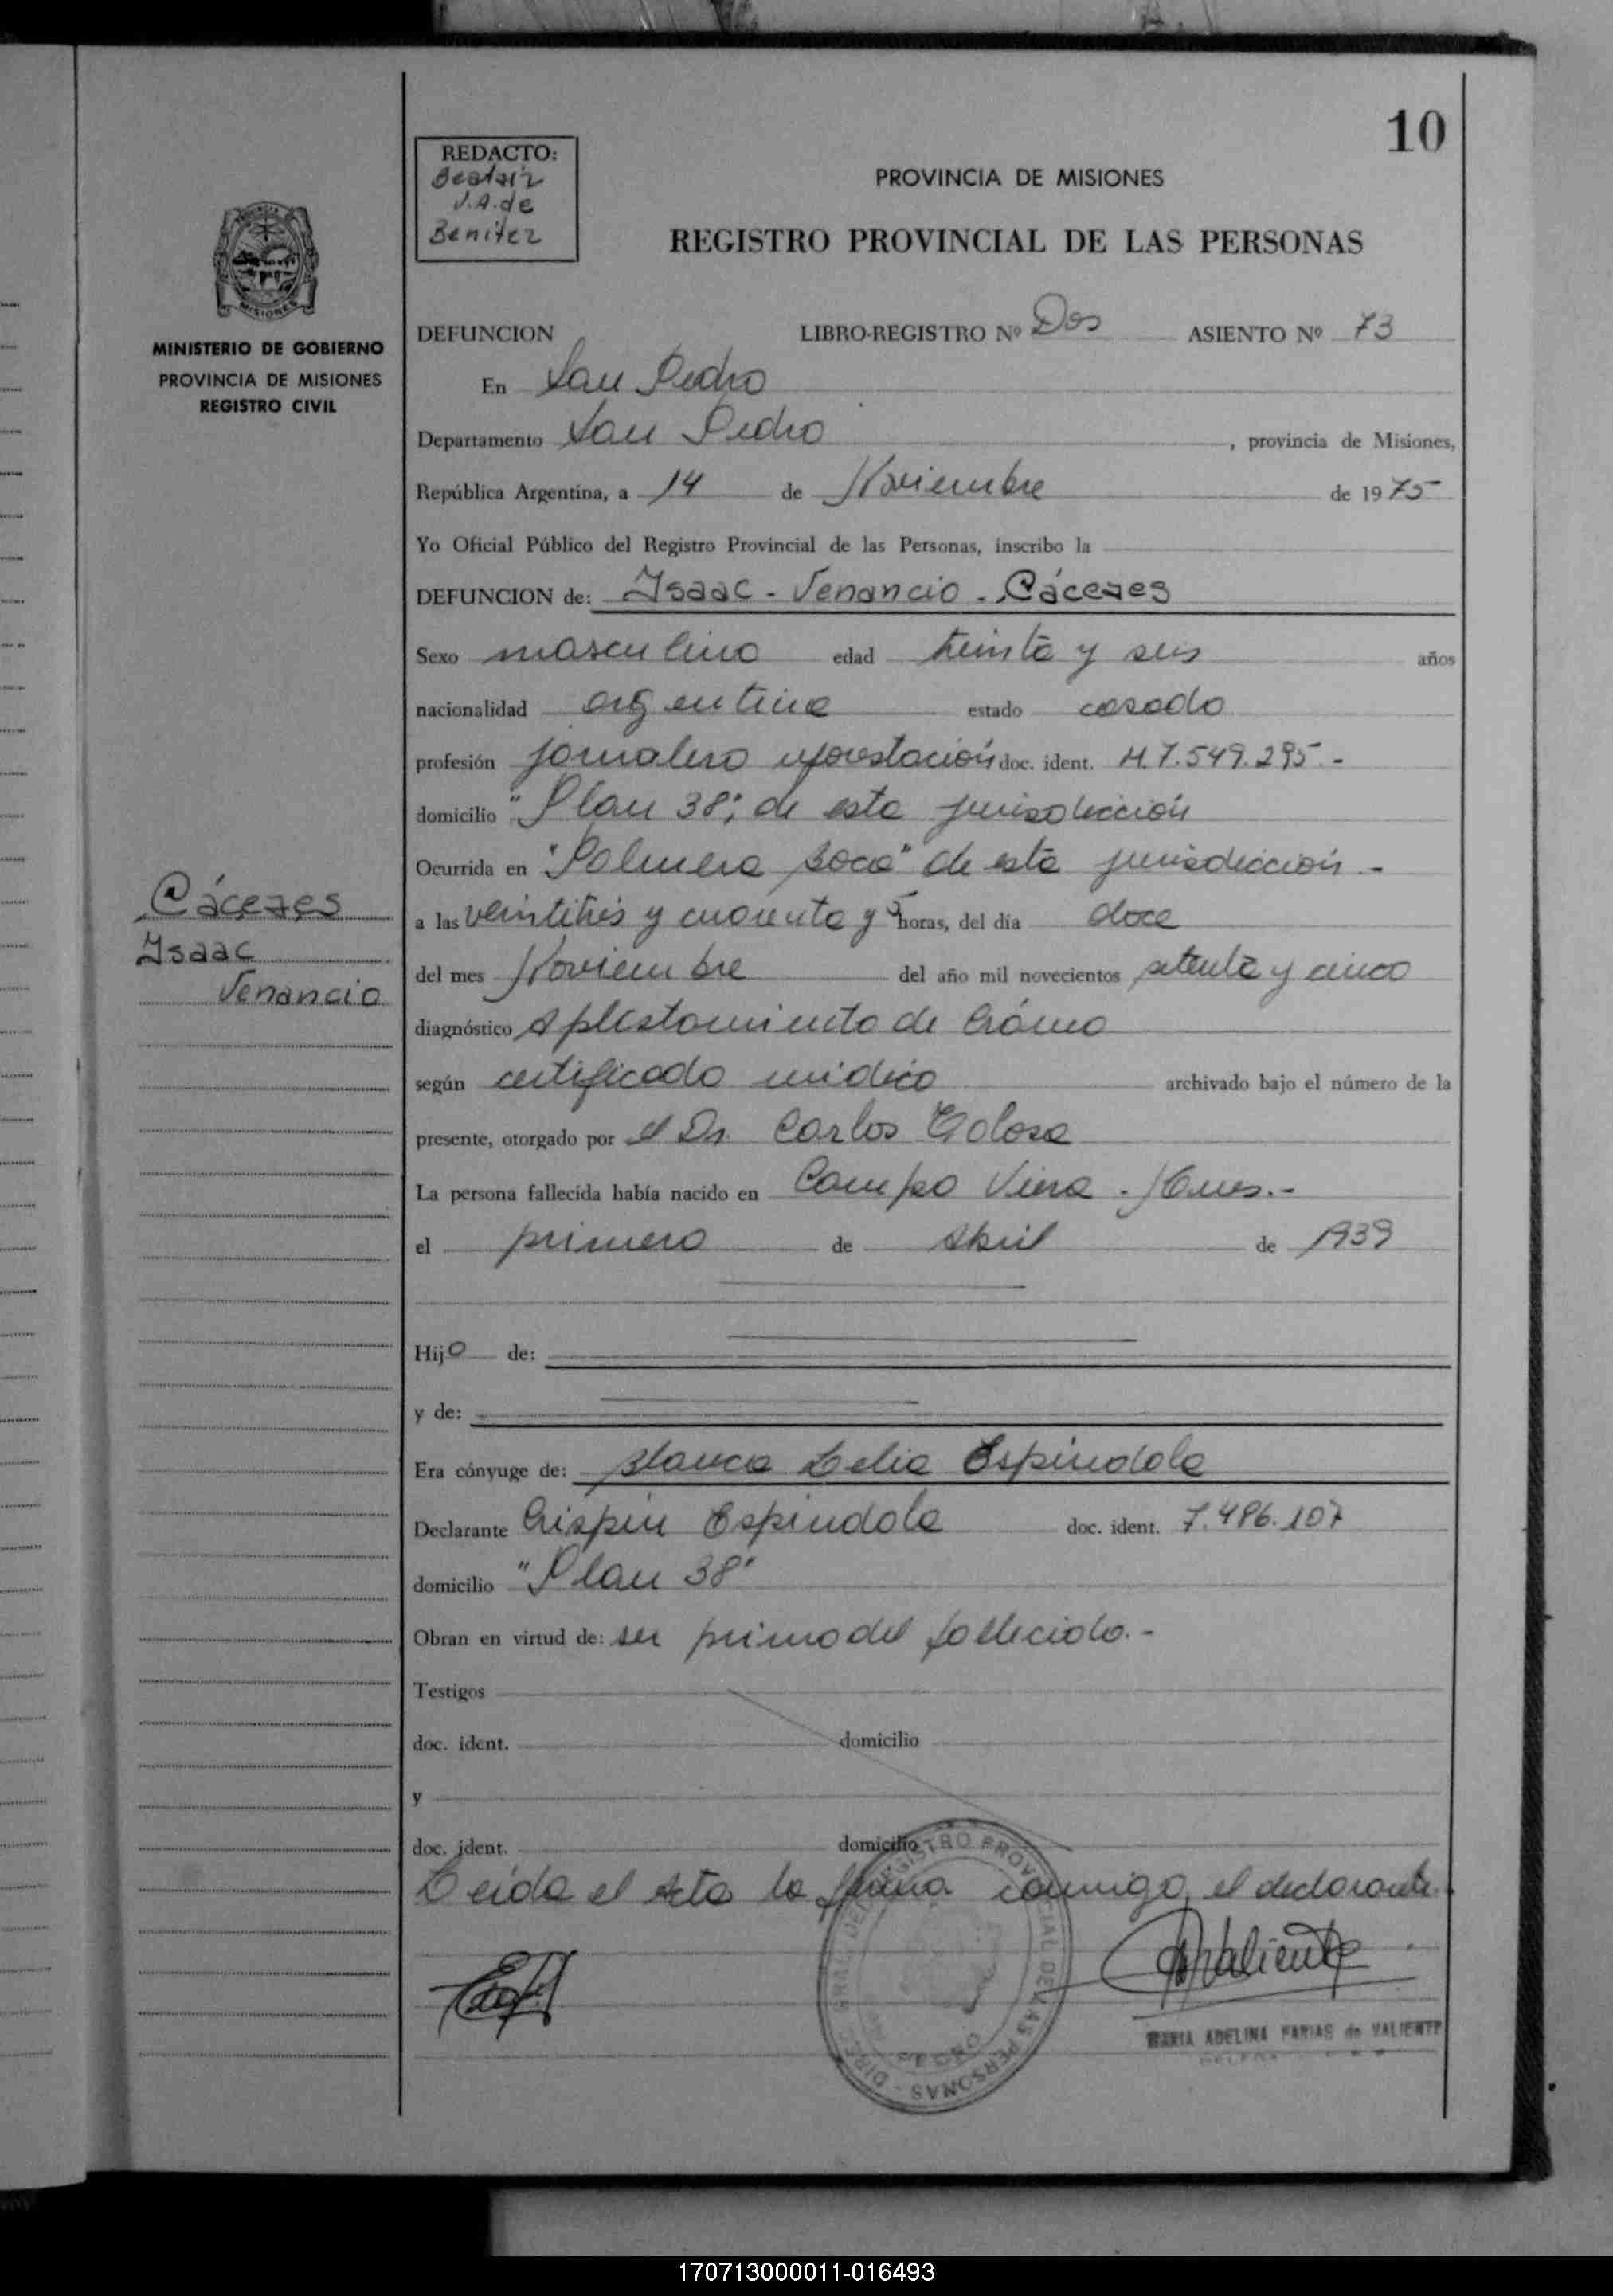 10
REDACTO:
Beatriz
V.A. de
Benitez
PROVINCIA DE MISIONES
REGISTRO PROVINCIAL DE LAS PERSONAS
MISIONES
MINISTERIO DE GOBIERNO
PROVINCIA DE MISIONES
REGISTRO CIVIL
DEFUNCION LIBRO-REGISTRO Nº Dos ASIENTO Nº 73
En San Pedro
Departamento San Pedro, provincia de Misiones,
República Argentina, a 14 de Noviembre de 1975
Yo Oficial Público del Registro Provincial de las Personas, inscribo la
DEFUNCION de: Isaac - Venancio - Cáceres
Sexo masculino edad treinta y seis años
nacionalidad argentina estado casado
profesión jornalero reforestación doc. ident. M. 7.549.295.-
domicilio "Plan 38", de esta jurisdicción
Ocurrida en "Palmera boca" de esta jurisdicción -
Cáceres
Isaac
Venancio
a las veintitrés y cuarenta y 5 horas, del día doce
del mes Noviembre del año mil novecientos setenta y cinco
diagnóstico Aplastamiento de Cráneo
según certificado médico archivado bajo el número de la
presente, otorgado por el Dr. Carlos Golosa
La persona fallecida había nacido en Campo Viera -
el primero de Abril de 1939
Hijo de:
y de:
Era cónyuge de: Blanca Delia Espíndola
Declarante Crispín Espíndola doc. ident. 7.486.107
domicilio "Plan 38"
Obran en virtud de: ser primo del fallecido.-
Testigos
doc. ident. domicilio
y
doc. ident. domicilio
Leída el Acta la firma conmigo, el declarante.
DIREC. GRAL. DEL REGISTRO PROVINCIAL DE LAS PERSONAS
PEDRO
Valiente
MARIA ADELINA FARIAS de VALIENTE
170713000011-016493